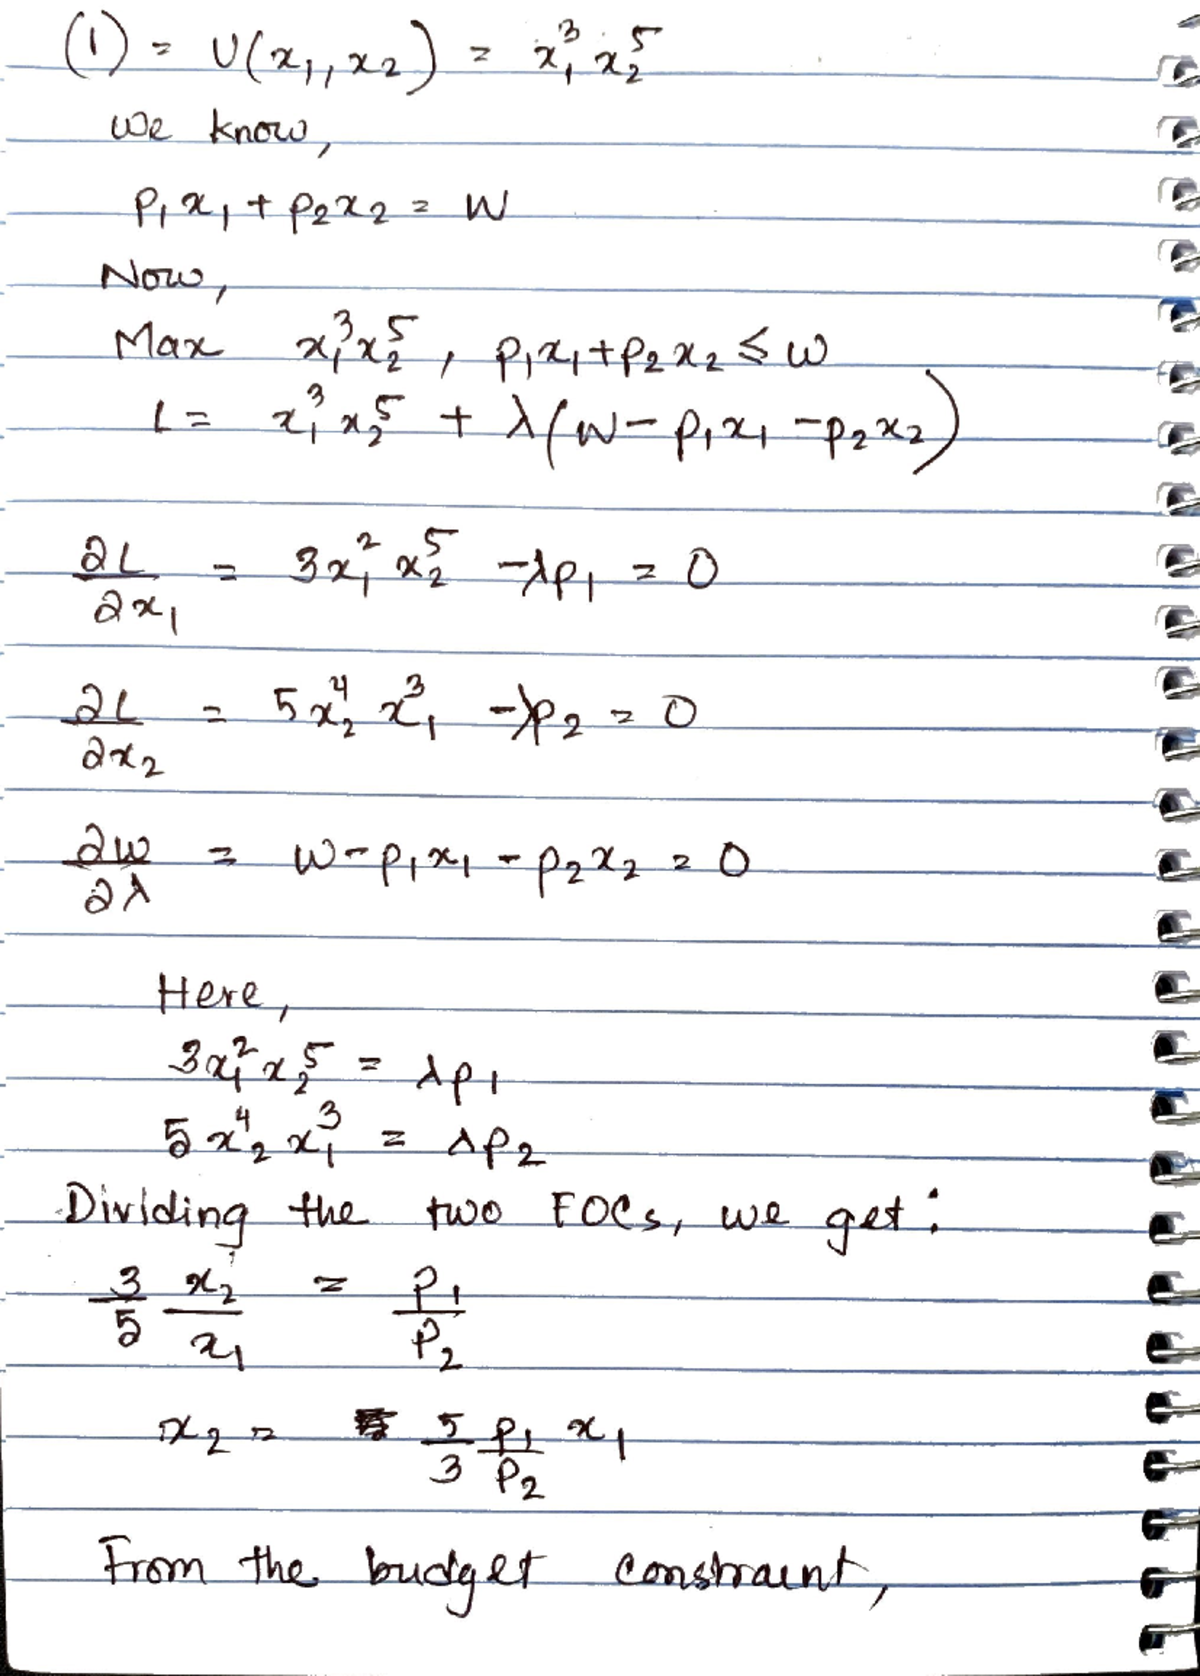 (1) = U(x₁, x₂) = x₁³ x₂⁵
We know,
p₁x₁ + p₂x₂ = W
Now,
Max x₁³x₂⁵, p₁x₁+p₂x₂ ≤ w
L = x₁³ x₂⁵ + λ(W - p₁x₁ - p₂x₂)
∂L/∂x₁ = 3x₁² x₂⁵ - λp₁ = 0
∂L/∂x₂ = 5x₂⁴ x₁³ - λp₂ = 0
∂w/∂λ = W - p₁x₁ - p₂x₂ = 0
Here,
3x₁² x₂⁵ = λp₁
5x₂⁴ x₁³ = λp₂
Dividing the two FOCs, we get:
3/5 x₂/x₁ = p₁/p₂
x₂ = 5/3 p₁/p₂ x₁
From the budget constraint,